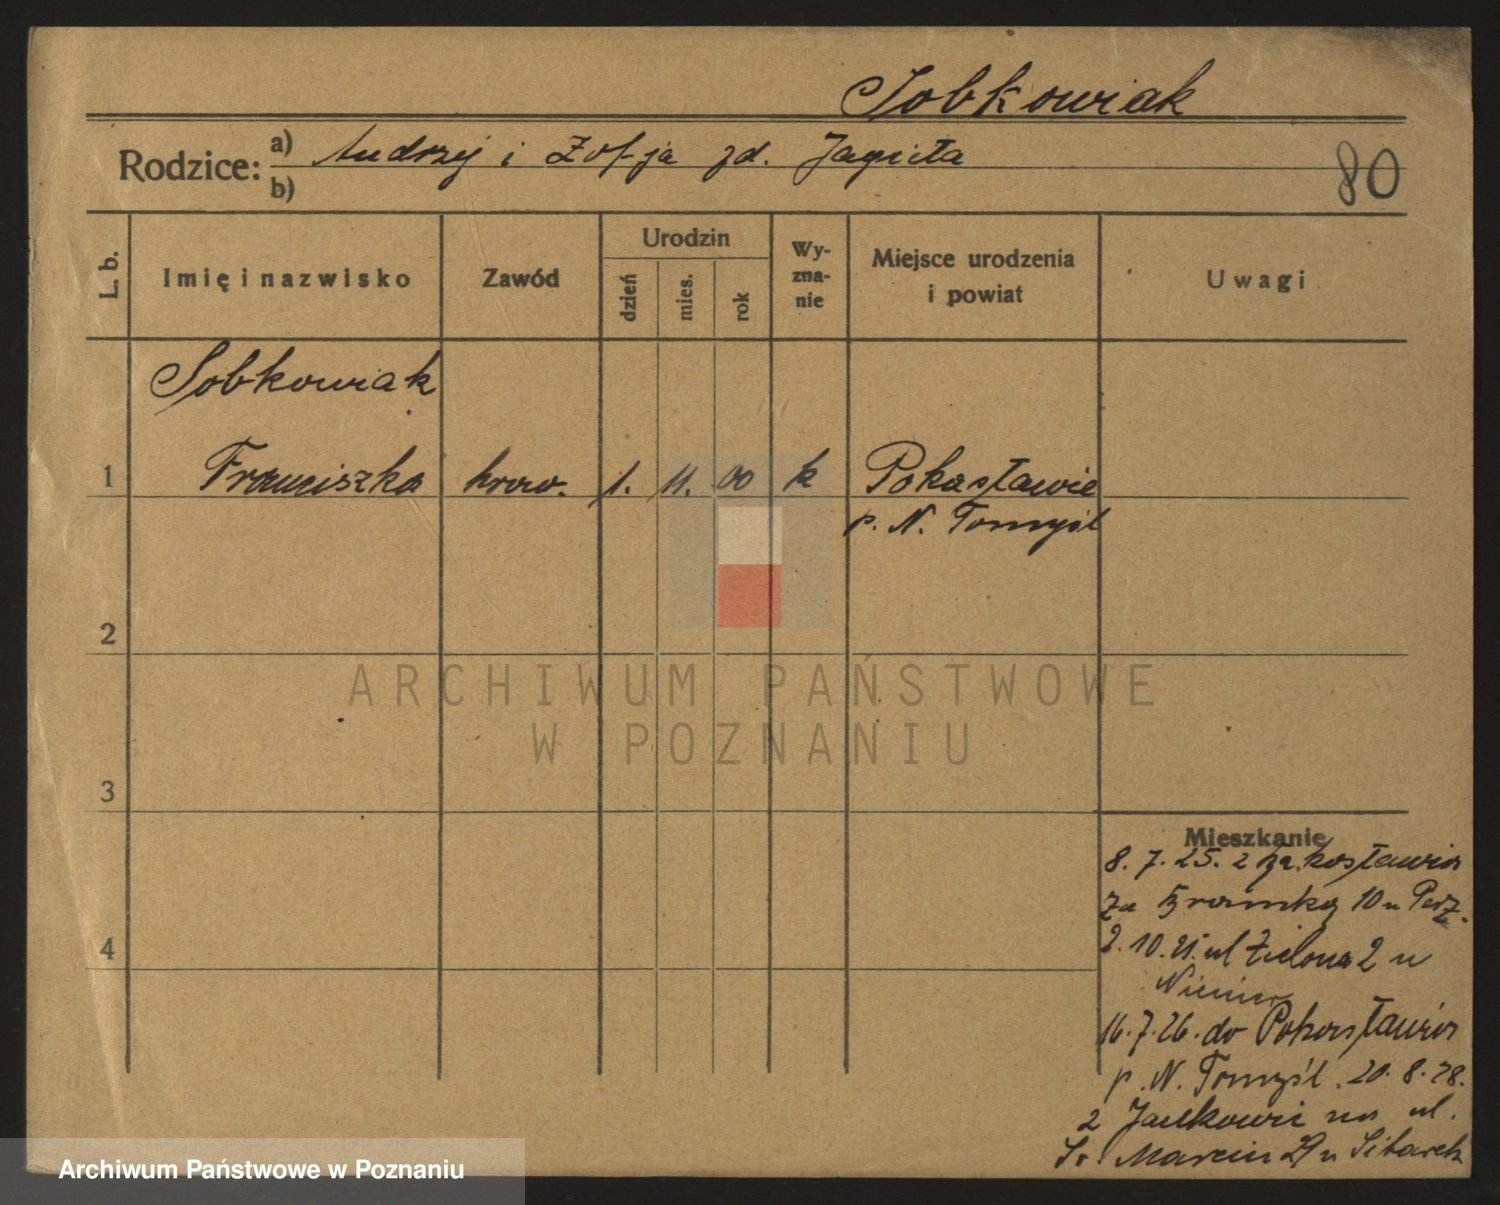 Sobkowiak
Rodzice: a) Andrzej i Zofja zd. Jagieła
b)
80
L. b.
Imię i nazwisko
Zawód
Urodzin
dzień
mies.
rok
Wy-
zna-
nie
Miejsce urodzenia
i powiat
Uwagi
Sobkowiak
1 Franciszka kraw. 1. 11. 00 k Pokasławie
p. N. Tomyśl
2
3
4
Mieszkanie
8. 7. 25. z
za Bramką 10 u
2. 10. 25. ul Zielona 2 u
16. 7. 26. do Pokasławia
p. N. Tomyśl. 20. 8. 28.
z Jankowic na ul.
Sw. Marcin u
ARCHIWUM PAŃSTWOWE
W POZNANIU
Archiwum Państwowe w Poznaniu